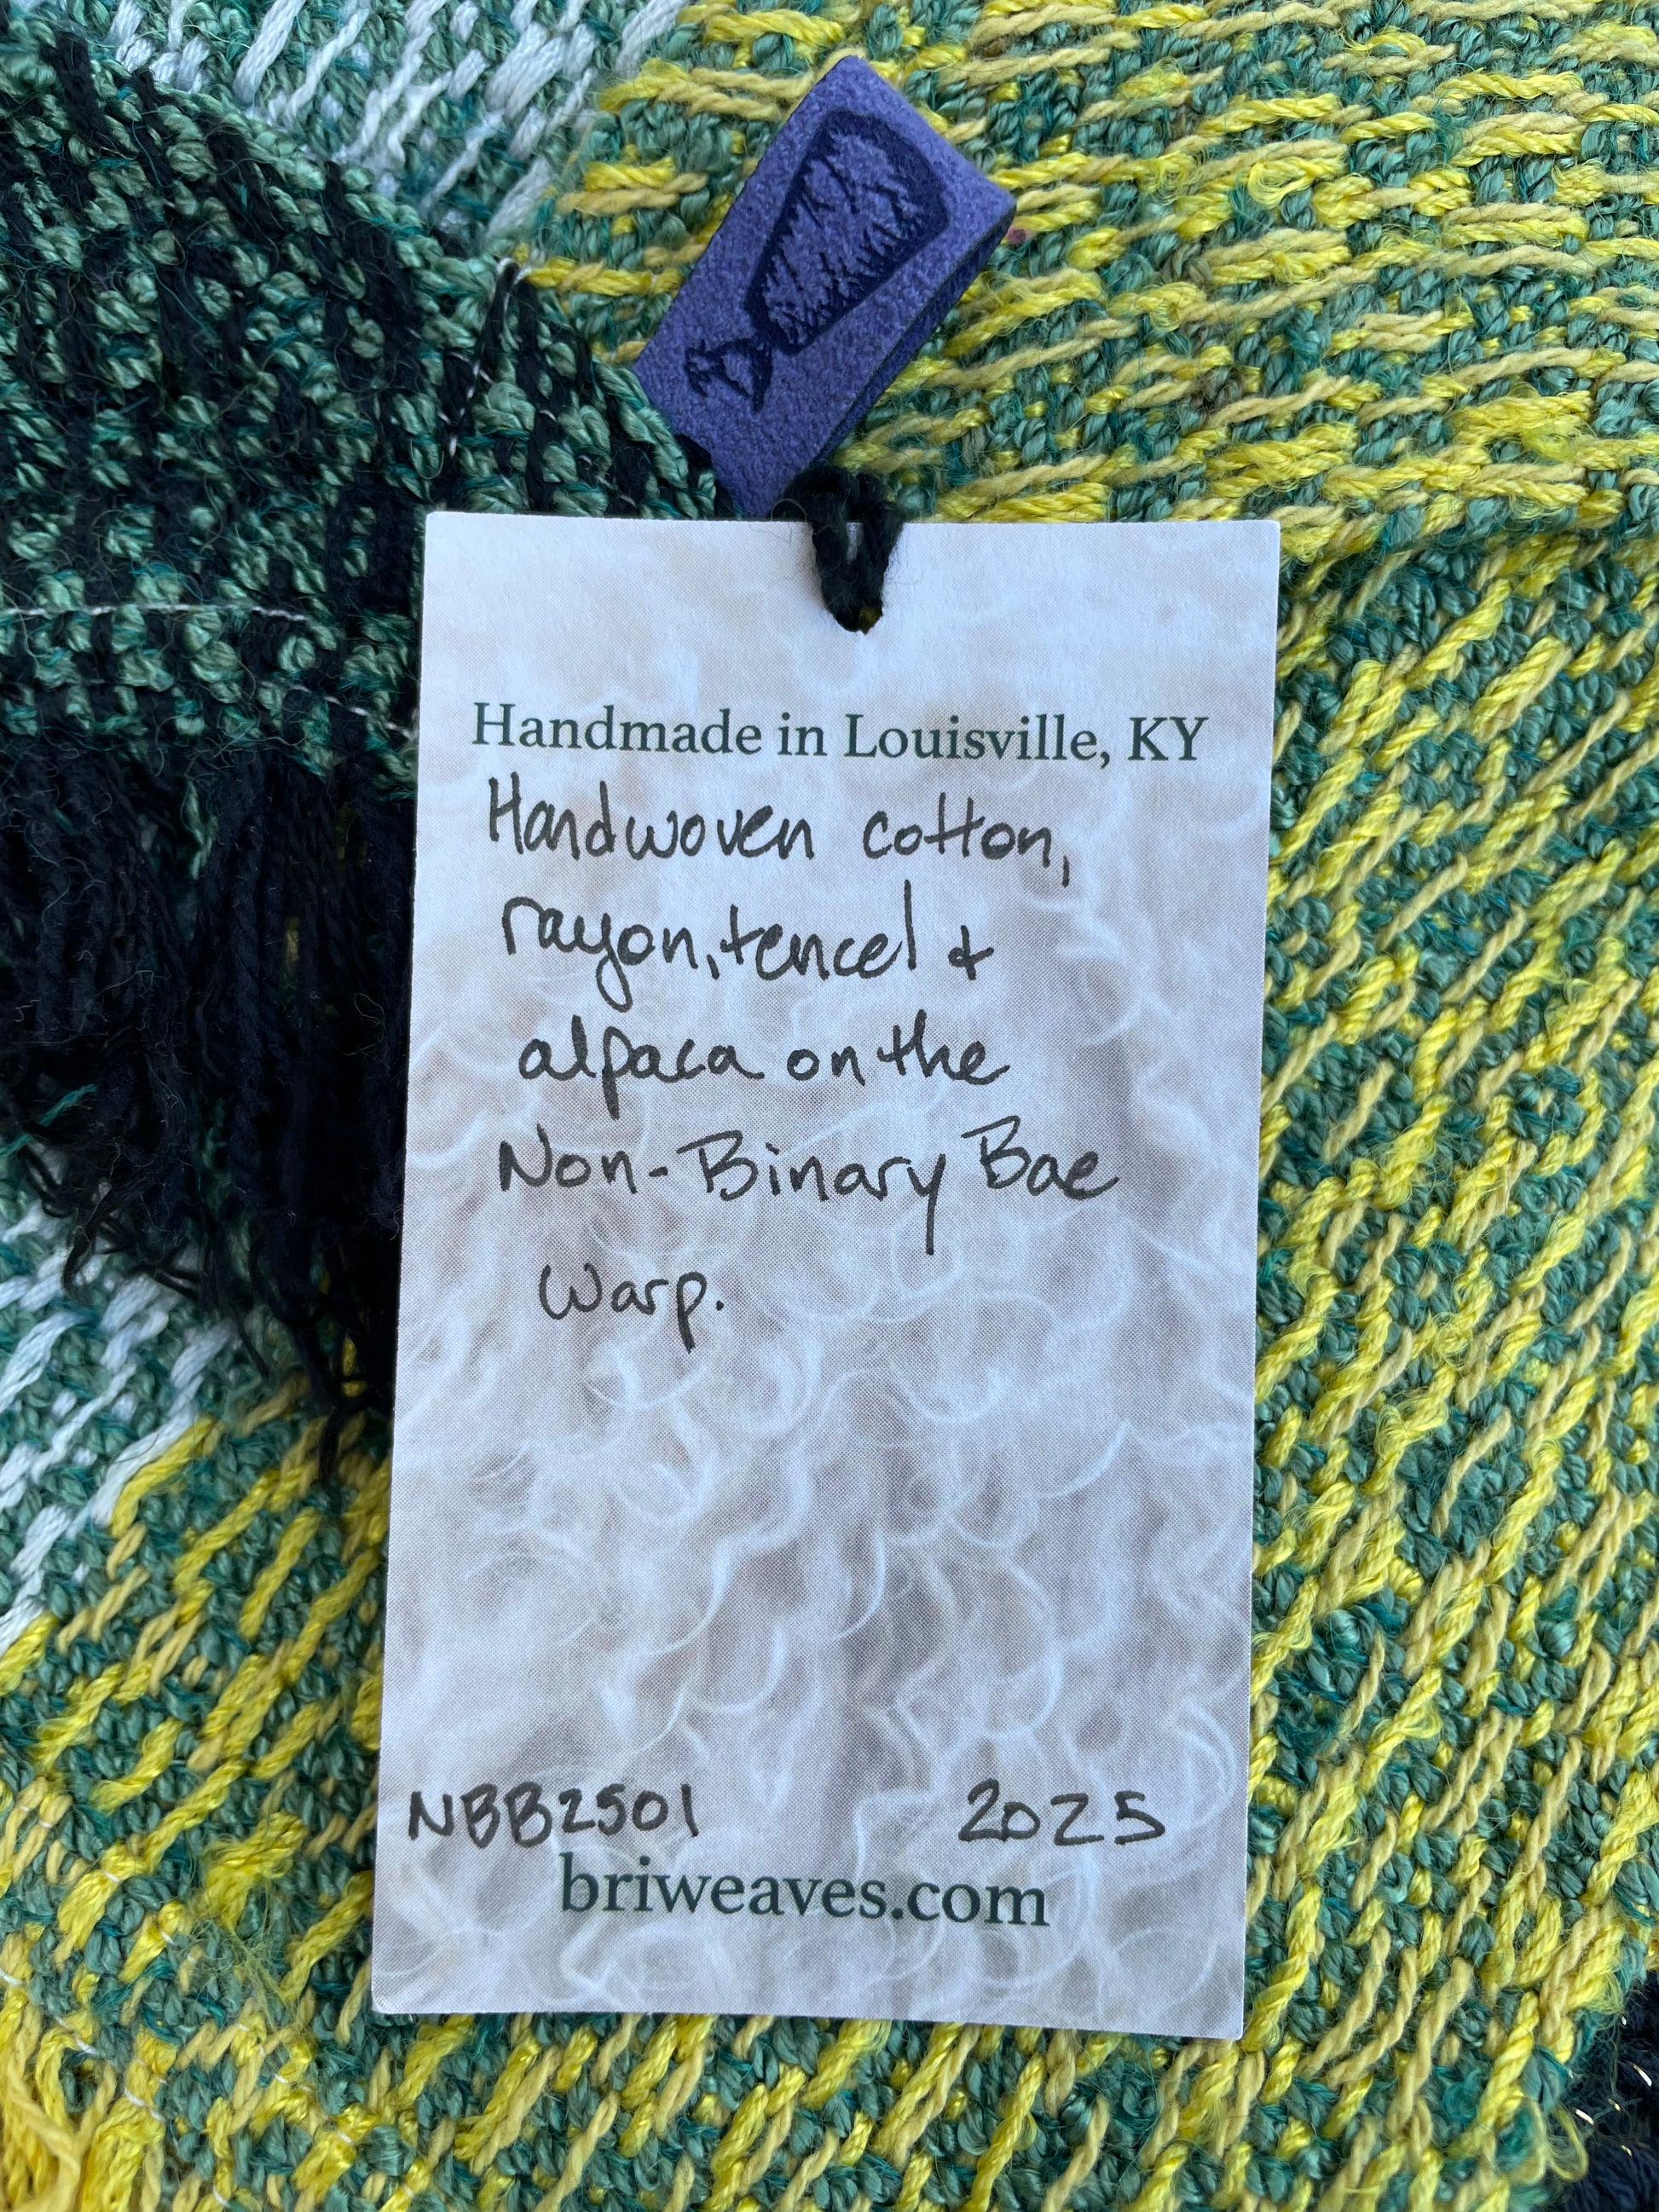 Handmade in Louisville, KY
Handwoven cotton,
rayon, tencel &
alpaca on the
Non-Binary Bae
Warp.
NBB2501 2025
briweaves.com